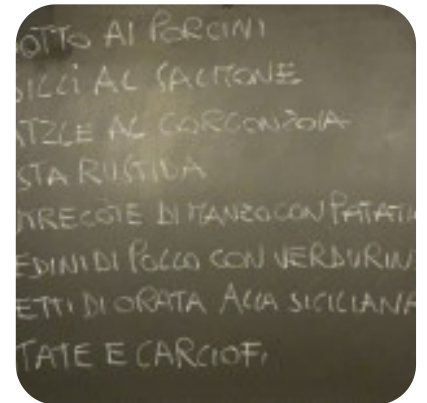 OTTO AI PORCINI
SILLI AL SALMONE
ATZLE AL GORGONZOLA
STA RUSTIDA
NTRECOTE DI MANZO CON PATATI
EDINI DI POLLO CON VERDURIN
ETTI DI ORATA ALLA SICILIANA
TATE E CARCIOFI